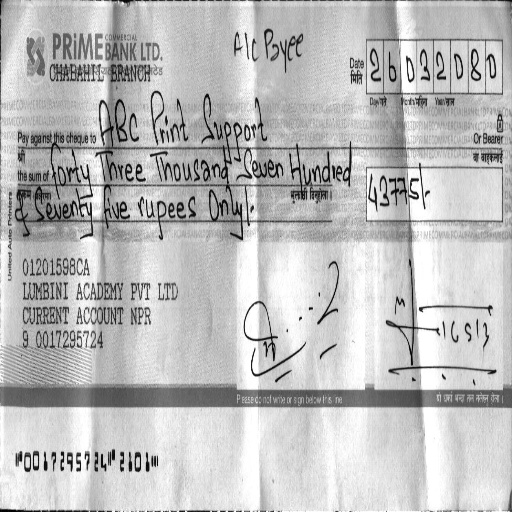 PRiME COMMERCIAL BANK LTD.
CHABAHIL BRANCH
A/C Payee
Date
मिति
26032080
Day/गते Month/महिना Year/साल
Pay against this cheque to ABC Print Support
Or Bearer
श्री
वा वाहकलाई
the sum of forty Three Thousand Seven Hundred
& Seventy five rupees Only/-
43775/-
United Auto Printers
01201598CA
LUMBINI ACADEMY PVT LTD
CURRENT ACCOUNT NPR
9 0017295724
Please do not write or sign below this line
⑈0017295724⑈2101⑈